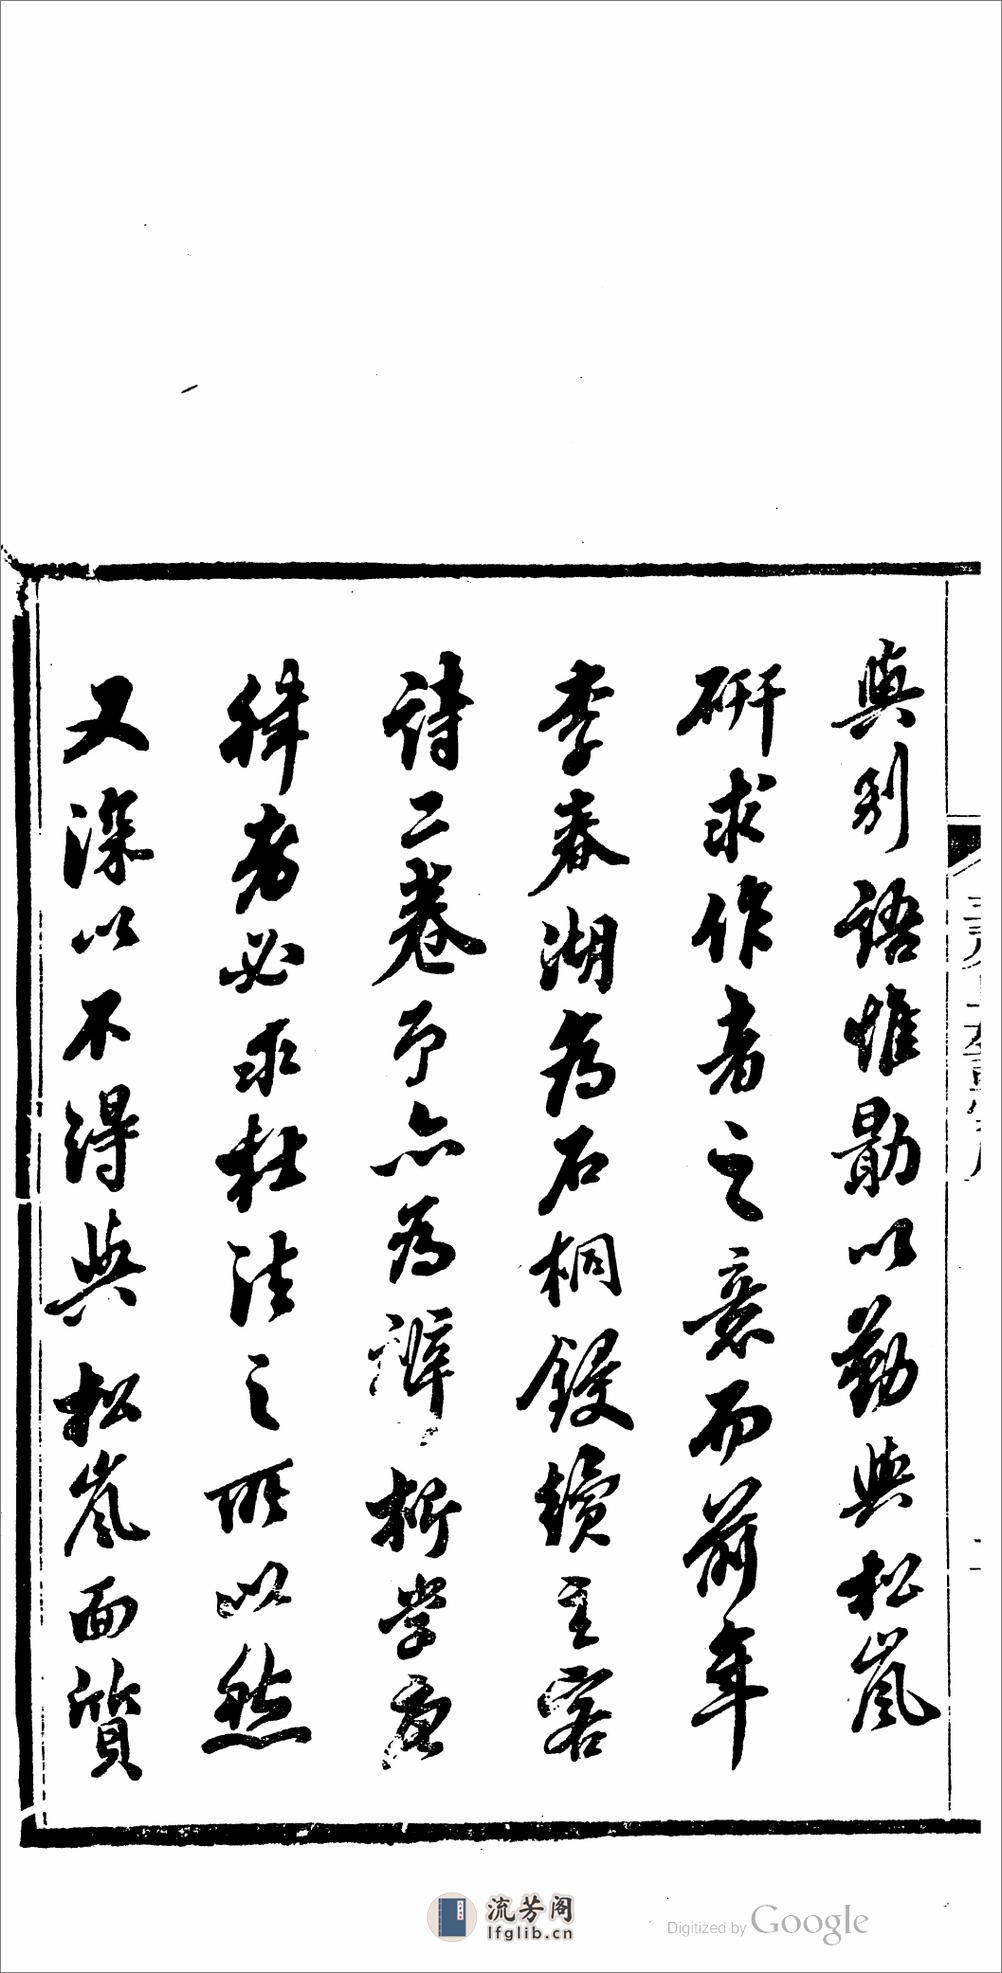 與別語惟勖以勤與松嵐
研求作者之意而前年
李春湖為石桐鋟續主客
詩二卷予亦為辨析學唐
律者必求杜法之所以然
又深以不得與松嵐面質
流芳阁
lfglib.cn
Digitized by Google